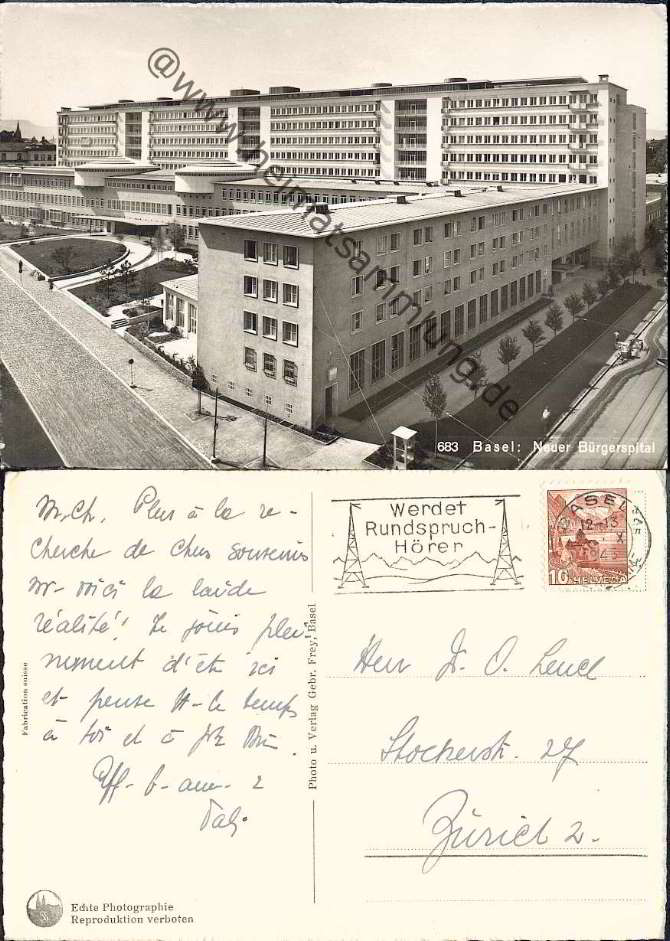 @www.heimatsammlung.de
683 Basel: Neuer Bürgerspital
M. Ch. Plus à la re-
cherche de chers souvenirs
voici la laide
réalité! Je jouis plei-
nement d'être ici
et pense le temps
à toi et à
Fabrication suisse
Photo u. Verlag Gebr. Frey, Basel
Werdet
Rundspruch-
Hörer
BASEL
12-13
X
10 HELVETIA
Herr Dr. O. Lencl
Stockerstr. 27
Zürich 2.
Echte Photographie
Reproduktion verboten